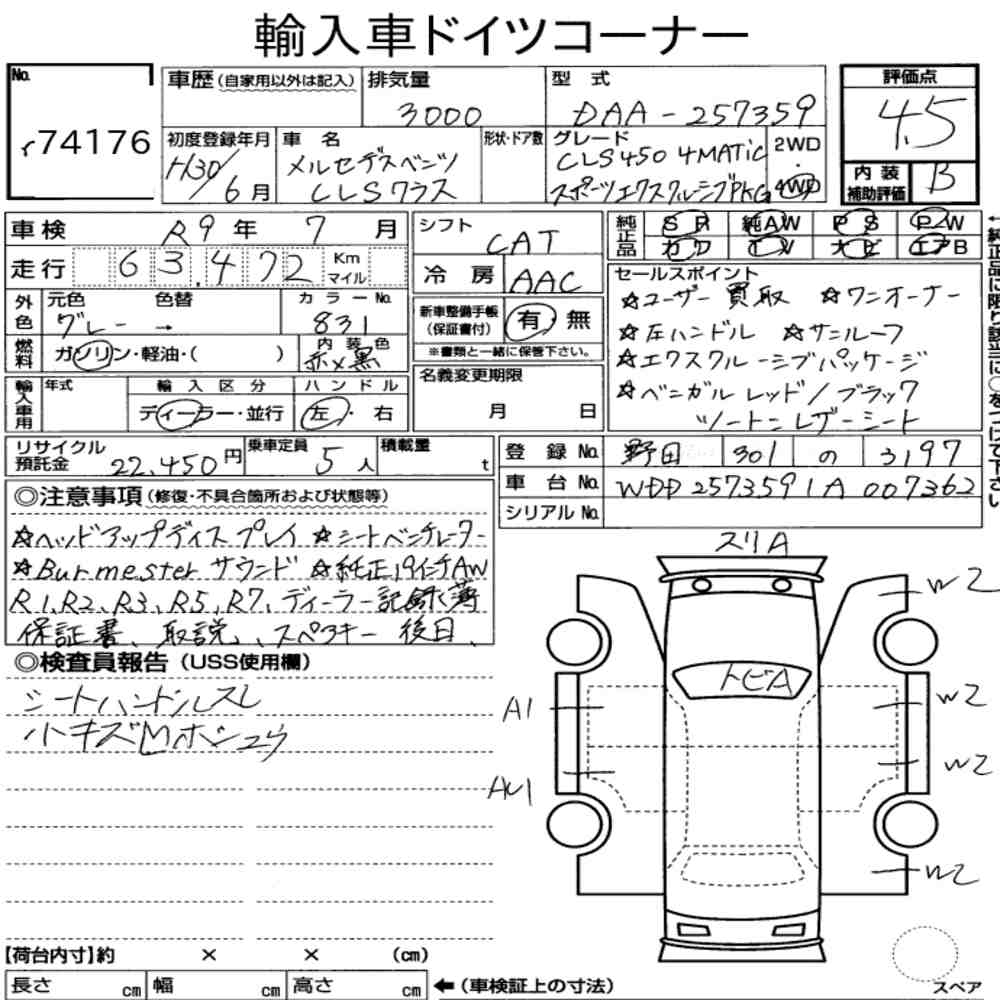 輸入車ドイツコーナー
No.
74176
車歴(自家用以外は記入)
排気量
3000
型式
DAA-257359
評価点
4.5
初度登録年月
H30/6月
車名
メルセデスベンツ
CLSクラス
形状・ドア数
グレード
CLS450 4MATiC
スポーツエクスクルーシブPKG
2WD
・
4WD
内装
補助評価
B
車検
R9年 7月
走行
63,472
Km
マイル
シフト
CAT
冷房
AAC
純正品
SR
純AW
PS
PW
カワ
TV
ナビ
エアB
←純正品に限り該当に○をつけて下さい
外色
元色
グレー
色替
→
カラーNo.
831
燃料
ガソリン・軽油・( )
内装色
赤×黒
新車整備手帳
(保証書付)
有 無
※書類と一緒に保管下さい。
セールスポイント
☆ユーザー買取 ☆ワンオーナー
☆左ハンドル ☆サンルーフ
☆エクスクルーシブパッケージ
☆ベンガルレッド/ブラック
ツートンレザーシート
輸入車用
年式
輸入区分
ディーラー・並行
ハンドル
左・右
名義変更期限
月 日
リサイクル
預託金
22,450円
乗車定員
5人
積載量
t
登録No.
野田 301 の 3197
車台No.
WDD2573591A007362
シリアルNo.
◎注意事項(修復・不具合箇所および状態等)
☆ヘッドアップディスプレイ ☆シートベンチレーター
☆Burmesterサウンド ☆純正19インチAW
R1、R2、R3、R5、R7、ディーラー記録簿
保証書、取説、スペアキー後日、
◎検査員報告(USS使用欄)
シートハンドルスレ
小キズMホシュウ
スリA
トビA
W2
A1
W2
AU1
W2
W2
【荷台内寸】約 × × (cm)
長さ cm 幅 cm 高さ cm ←(車検証上の寸法)
スペア